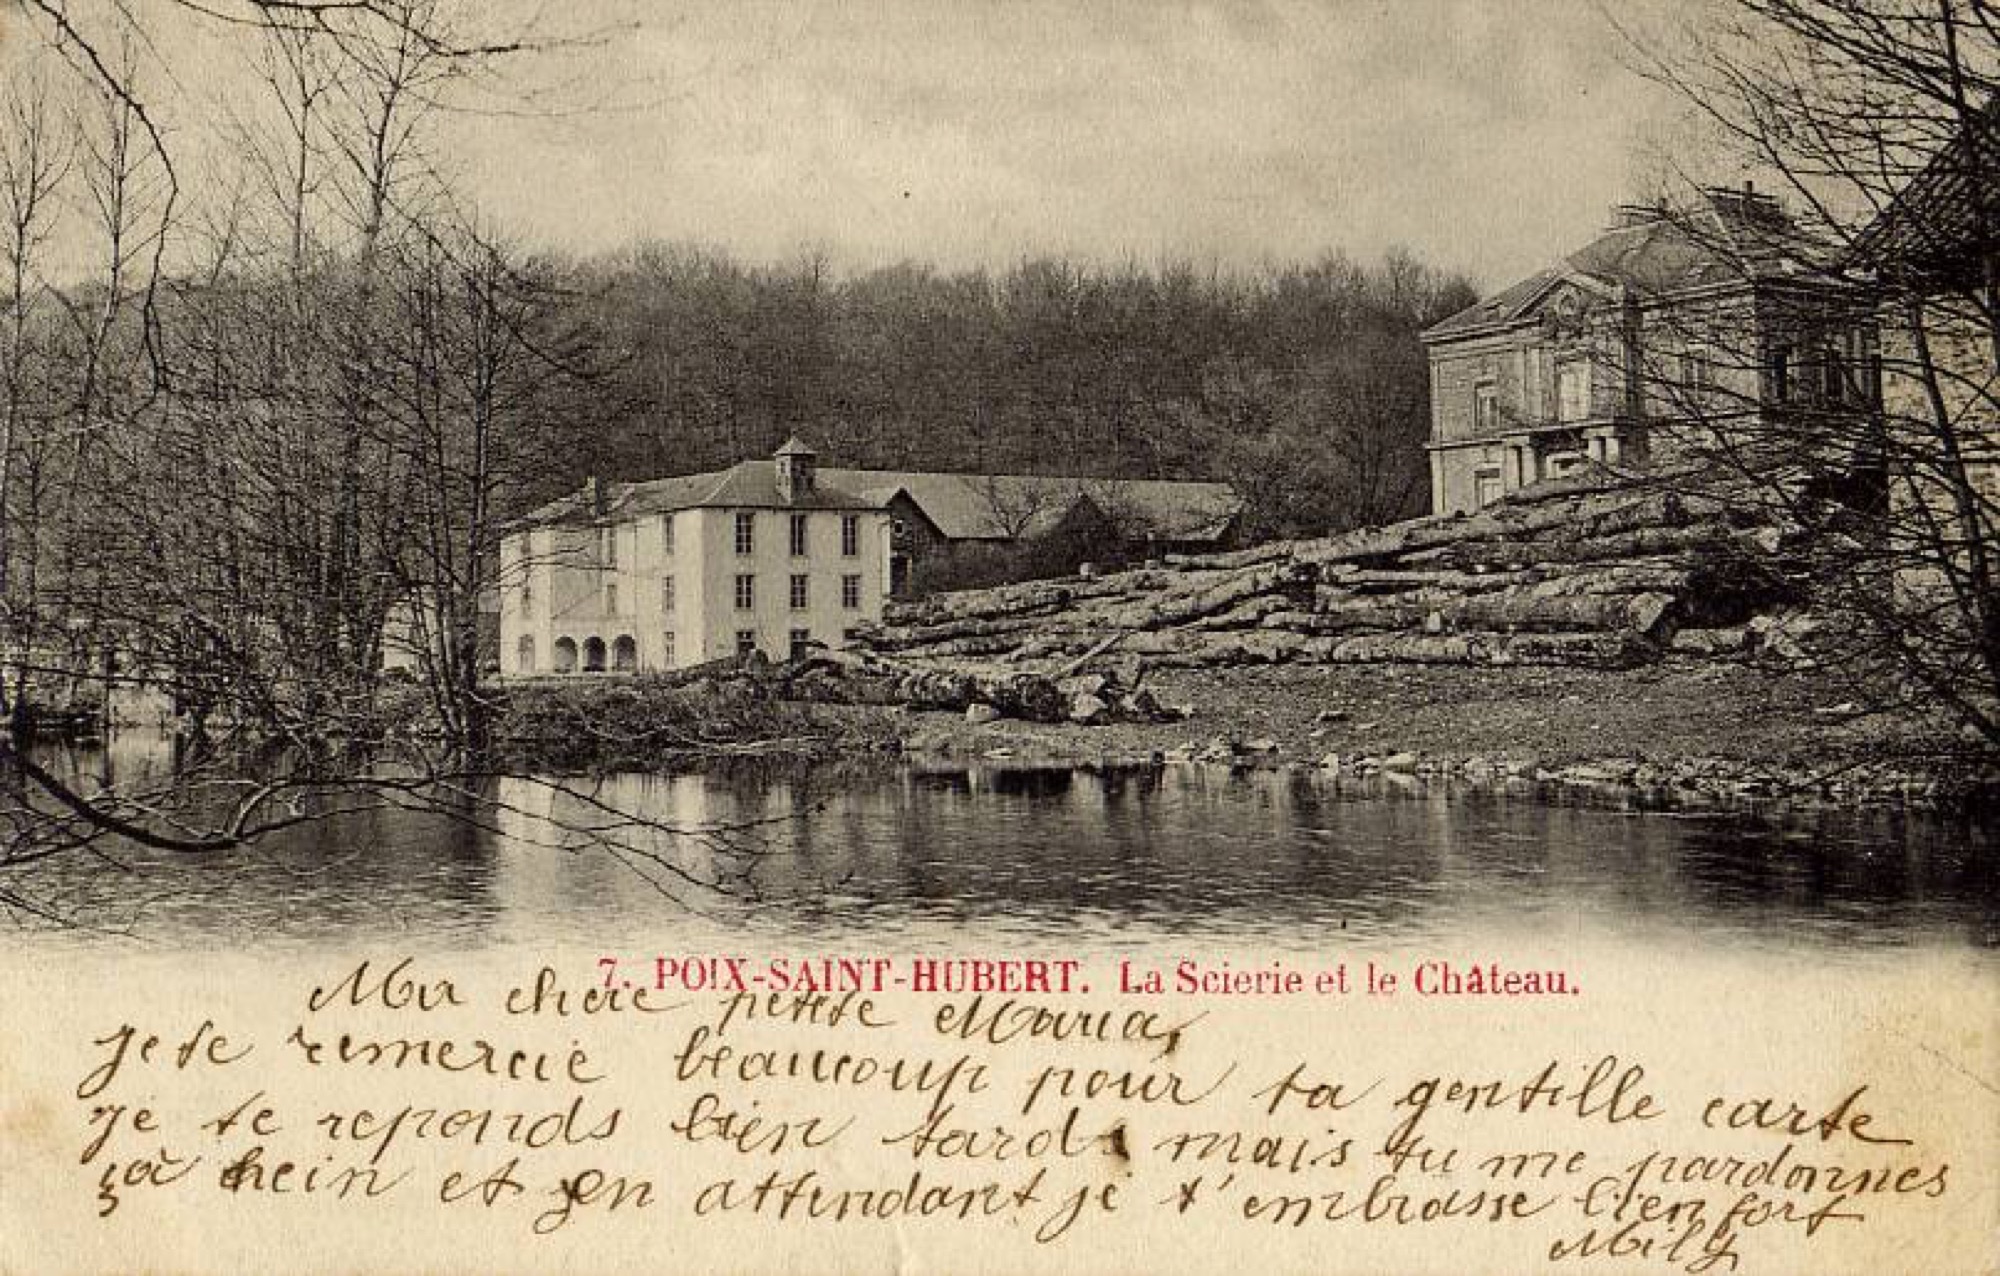 7. POIX-SAINT-HUBERT. La Scierie et le Château.
Ma chère petite Maria,
je te remercie beaucoup pour ta gentille carte
je te reponds bien tards mais tu me pardonnes
ça hein et en attendant je t'embrasse bien fort
Mily